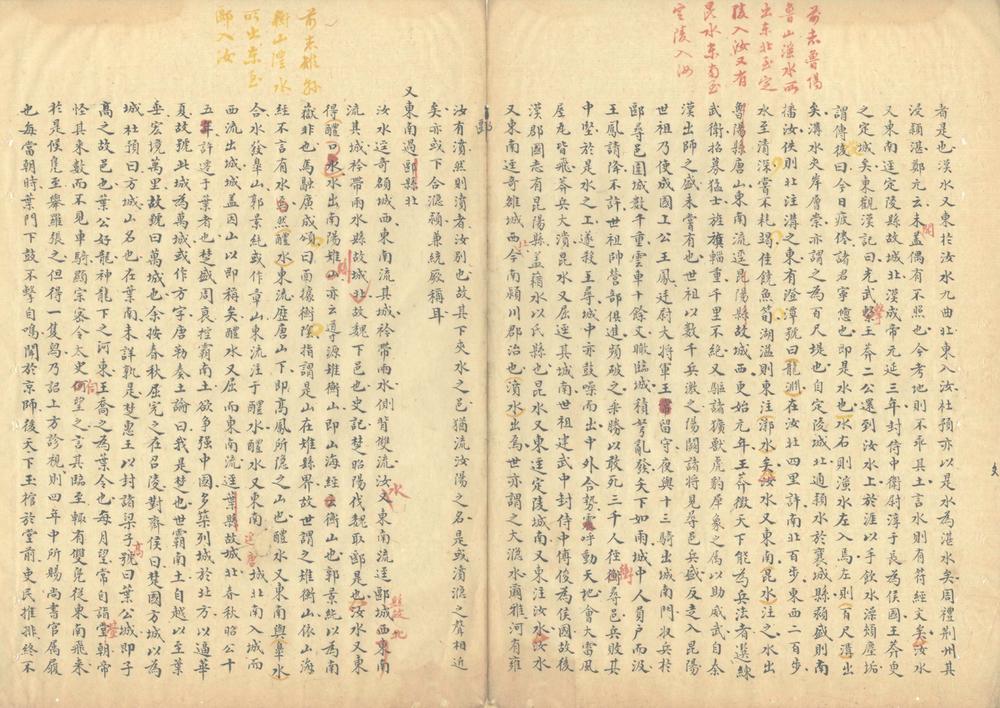 前未魯陽
魯山滍水所
出東北至定
陵入汝又有
昆水東南至
定陵入汝
者是也湛水又東於汝水九曲北東入汝杜預亦以是水為湛水矣周禮荆州其
浸潁湛鄭元云未盖偶有不照也今考地則不乖其土言水則有符經文矣汝水
又東南逕定陵縣故城北漢成帝元延三年封侍中衛尉淳于長為侯國王莽更
之定城矣東觀漢記曰光武擊王莽二公還到汝水上於涯以手飲水澡頰塵垢
謂傳俊曰今日疲倦諸君寧憊也即是水也水右則滍水左入馬左則百尺溝出
矣溝水夾岸層崇亦謂之為百尺堤也自定陵城北通潁水於襄城縣潁盛則南
播汝佚則北注溝之東有澄潭號曰龍淵在汝北四里許南北百步東西二百步
水至清深嘗不耗竭佳饒魚筍湖溢則東注漷水矣汝水又東南昆水注之水出
魯陽縣唐山東南流逕昆陽縣故城西更始元年王莽徵天下能為兵法者選練
武衛招募猛士旌旗輜重千里不絕又驅諸獷獸虎豹犀象之屬以助威武自秦
漢出師之盛未嘗有也世祖以數千兵徼之陽關諸將見尋邑兵盛反走入昆陽
世祖乃使成國上公王鳳廷尉大將軍王常留守夜與十三騎出城南門収兵於
郾尋邑圍城數十重雲車十餘丈瞰臨城積弩亂發矢下如雨城中人負户而汲
王鳳請降不許世祖帥營部俱進頻破之乘勝以敢死三千人徑衝尋邑兵敗其
中堅於是水之上遂殺王尋城中亦鼓噪而出中外合勢震呼動天地會大雷風
屋瓦皆飛莽兵大潰昆水又屈逕其城南世祖建武中封侍中傅俊為侯國故後
漢郡國志有昆陽縣盖藉水以氏縣也昆水又東逕定陵城南又東注汝水汝水
又東南逕奇雒城西北今南潁川郡治也濆水出為世亦謂之大㶏水爾雅河有雍
前未雉縣
衡山澧水
所出東至
郾入汝
汝有濆然則濆者汝别也故其下夾水之邑猶流汝陽之名是或濆㶏之聲相近
矣亦或下合㶏潁兼統厥稱耳
又東南過郾縣北
汝水逕奇頟城西東南流其城衿帶雨水側背雙流汝水又東南流逕郾城西東南
流其城衿帶雨水縣故城北故魏下邑也史記楚昭陽伐魏取郾是也汝水又東
得醴口水水出南陽雉山亦云導源雉衡山即山海經云衡山也郭景純以為南
嶽非也馬融廣成頌曰面據衡陰指謂是山在雉縣界故世謂之雉衡山依山海
經不言有水為然醴水東流歷唐山下即高鳳所隱之山也醴水又東南與臯水
合水發臯山郭景純或作章山東流注于醴水醴水又東南逕唐城北南入城而
西流出城城盖因山以即稱矣醴水又屈而東南流逕葉縣故城北春秋昭公十
五年許遷于葉者也楚盛周衰控霸南土欲争强中國多築列城於北方以逼華
夏故號此城為萬城或作方字唐勒奏土論曰我是楚也世霸南土自越以至葉
垂宏境萬里故號曰萬城也余按春秋屈完之在召陵對齊侯曰楚國方城以為
城杜預曰方城山名也在葉南未詳孰是楚惠王以封諸梁子號曰葉公城即子
高之故邑也葉公好龍神龍下之河東王喬之為葉令也每月望常自詣堂朝帝
怪其来數而不見車騎顯宗密令太史伺望之言其臨至輒有雙鳧從東南飛来
於是候鳧至舉羅張之但得一隻鳥乃詔上方診視則四年中所賜尚書官属履
也每當朝時葉門下鼓不擊自鳴聞於京師後天下玉棺於堂前吏民推排終不